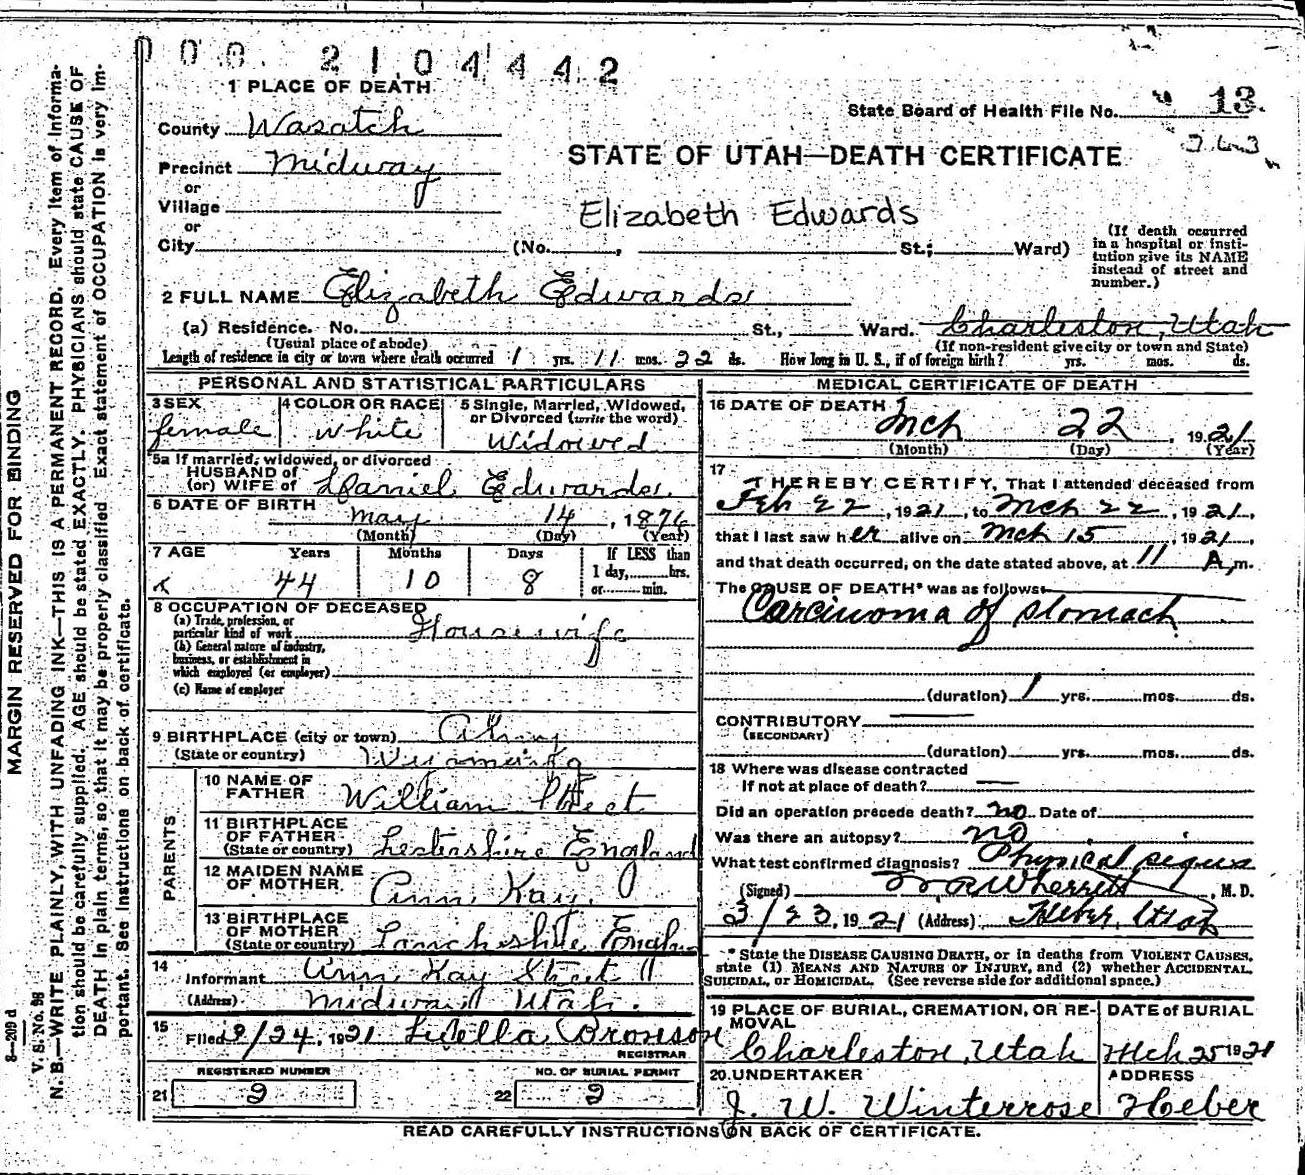 000 2104442
1 PLACE OF DEATH
State Board of Health File No. 13.
County Wasatch
STATE OF UTAH—DEATH CERTIFICATE
Precinct Midway
or
Village
Elizabeth Edwards
or
City (No. , St.; Ward)
(If death occurred
in a hospital or insti-
tution give its NAME
instead of street and
number.)
2 FULL NAME Elizabeth Edwards
(a) Residence. No. St., Ward. Charleston, Utah
(Usual place of abode) (If non-resident give city or town and State)
Length of residence in city or town where death occurred 1 yrs. 11 mos. 22 ds. How long in U. S., if of foreign birth? yrs. mos. ds.
PERSONAL AND STATISTICAL PARTICULARS
3 SEX
female
4 COLOR OR RACE
White
5 Single, Married, Widowed,
or Divorced (write the word)
Widowed
5a If married, widowed, or divorced
HUSBAND of
(or) WIFE of Daniel Edwards
6 DATE OF BIRTH
May 14, 1876
(Month) (Day) (Year)
7 AGE Years Months Days If LESS than
1 day, hrs.
or min.
44 10 8
8 OCCUPATION OF DECEASED
(a) Trade, profession, or
particular kind of work Housewife
(b) General nature of industry,
business, or establishment in
which employed (or employer)
(c) Name of employer
9 BIRTHPLACE (city or town)
(State or country)
PARENTS
10 NAME OF
FATHER William Street
11 BIRTHPLACE
OF FATHER
(State or country) England
12 MAIDEN NAME
OF MOTHER Ann Kay
13 BIRTHPLACE
OF MOTHER
(State or country)
14
Informant Ann Kay Street
(Address) Midway Utah.
15
Filed /24, 1921 Luella Bronson
REGISTRAR
REGISTERED NUMBER
21 9
NO. OF BURIAL PERMIT
22 9
MEDICAL CERTIFICATE OF DEATH
16 DATE OF DEATH
Mch 22, 1921
(Month) (Day) (Year)
17
I HEREBY CERTIFY, That I attended deceased from
Feb 22, 1921, to Mch 22, 1921,
that I last saw her alive on Mch 15, 1921,
and that death occurred, on the date stated above, at 11 A. m.
The CAUSE OF DEATH* was as follows:
Carcinoma of stomach
(duration) 1 yrs. mos. ds.
CONTRIBUTORY
(SECONDARY)
(duration) yrs. mos. ds.
18 Where was disease contracted
If not at place of death?
Did an operation precede death? no Date of
Was there an autopsy? no
What test confirmed diagnosis? Physical signs
(Signed) Wherritt, M. D.
3/23, 1921 (Address) Heber, Utah
* State the DISEASE CAUSING DEATH, or in deaths from VIOLENT CAUSES,
state (1) MEANS AND NATURE OF INJURY, and (2) whether ACCIDENTAL,
SUICIDAL, or HOMICIDAL. (See reverse side for additional space.)
19 PLACE OF BURIAL, CREMATION, OR RE-
MOVAL
Charleston, Utah
DATE of BURIAL
Mch 25 1921
20 UNDERTAKER
J. W. Winterrose
ADDRESS
Heber
READ CAREFULLY INSTRUCTIONS ON BACK OF CERTIFICATE.
MARGIN RESERVED FOR BINDING
N. B.—WRITE PLAINLY, WITH UNFADING INK—THIS IS A PERMANENT RECORD. Every item of informa-
tion should be carefully supplied. AGE should be stated EXACTLY. PHYSICIANS should state CAUSE OF
DEATH in plain terms, so that it may be properly classified. Exact statement of OCCUPATION is very im-
portant. See instructions on back of certificate.
V. S. No. 98
8—209 d